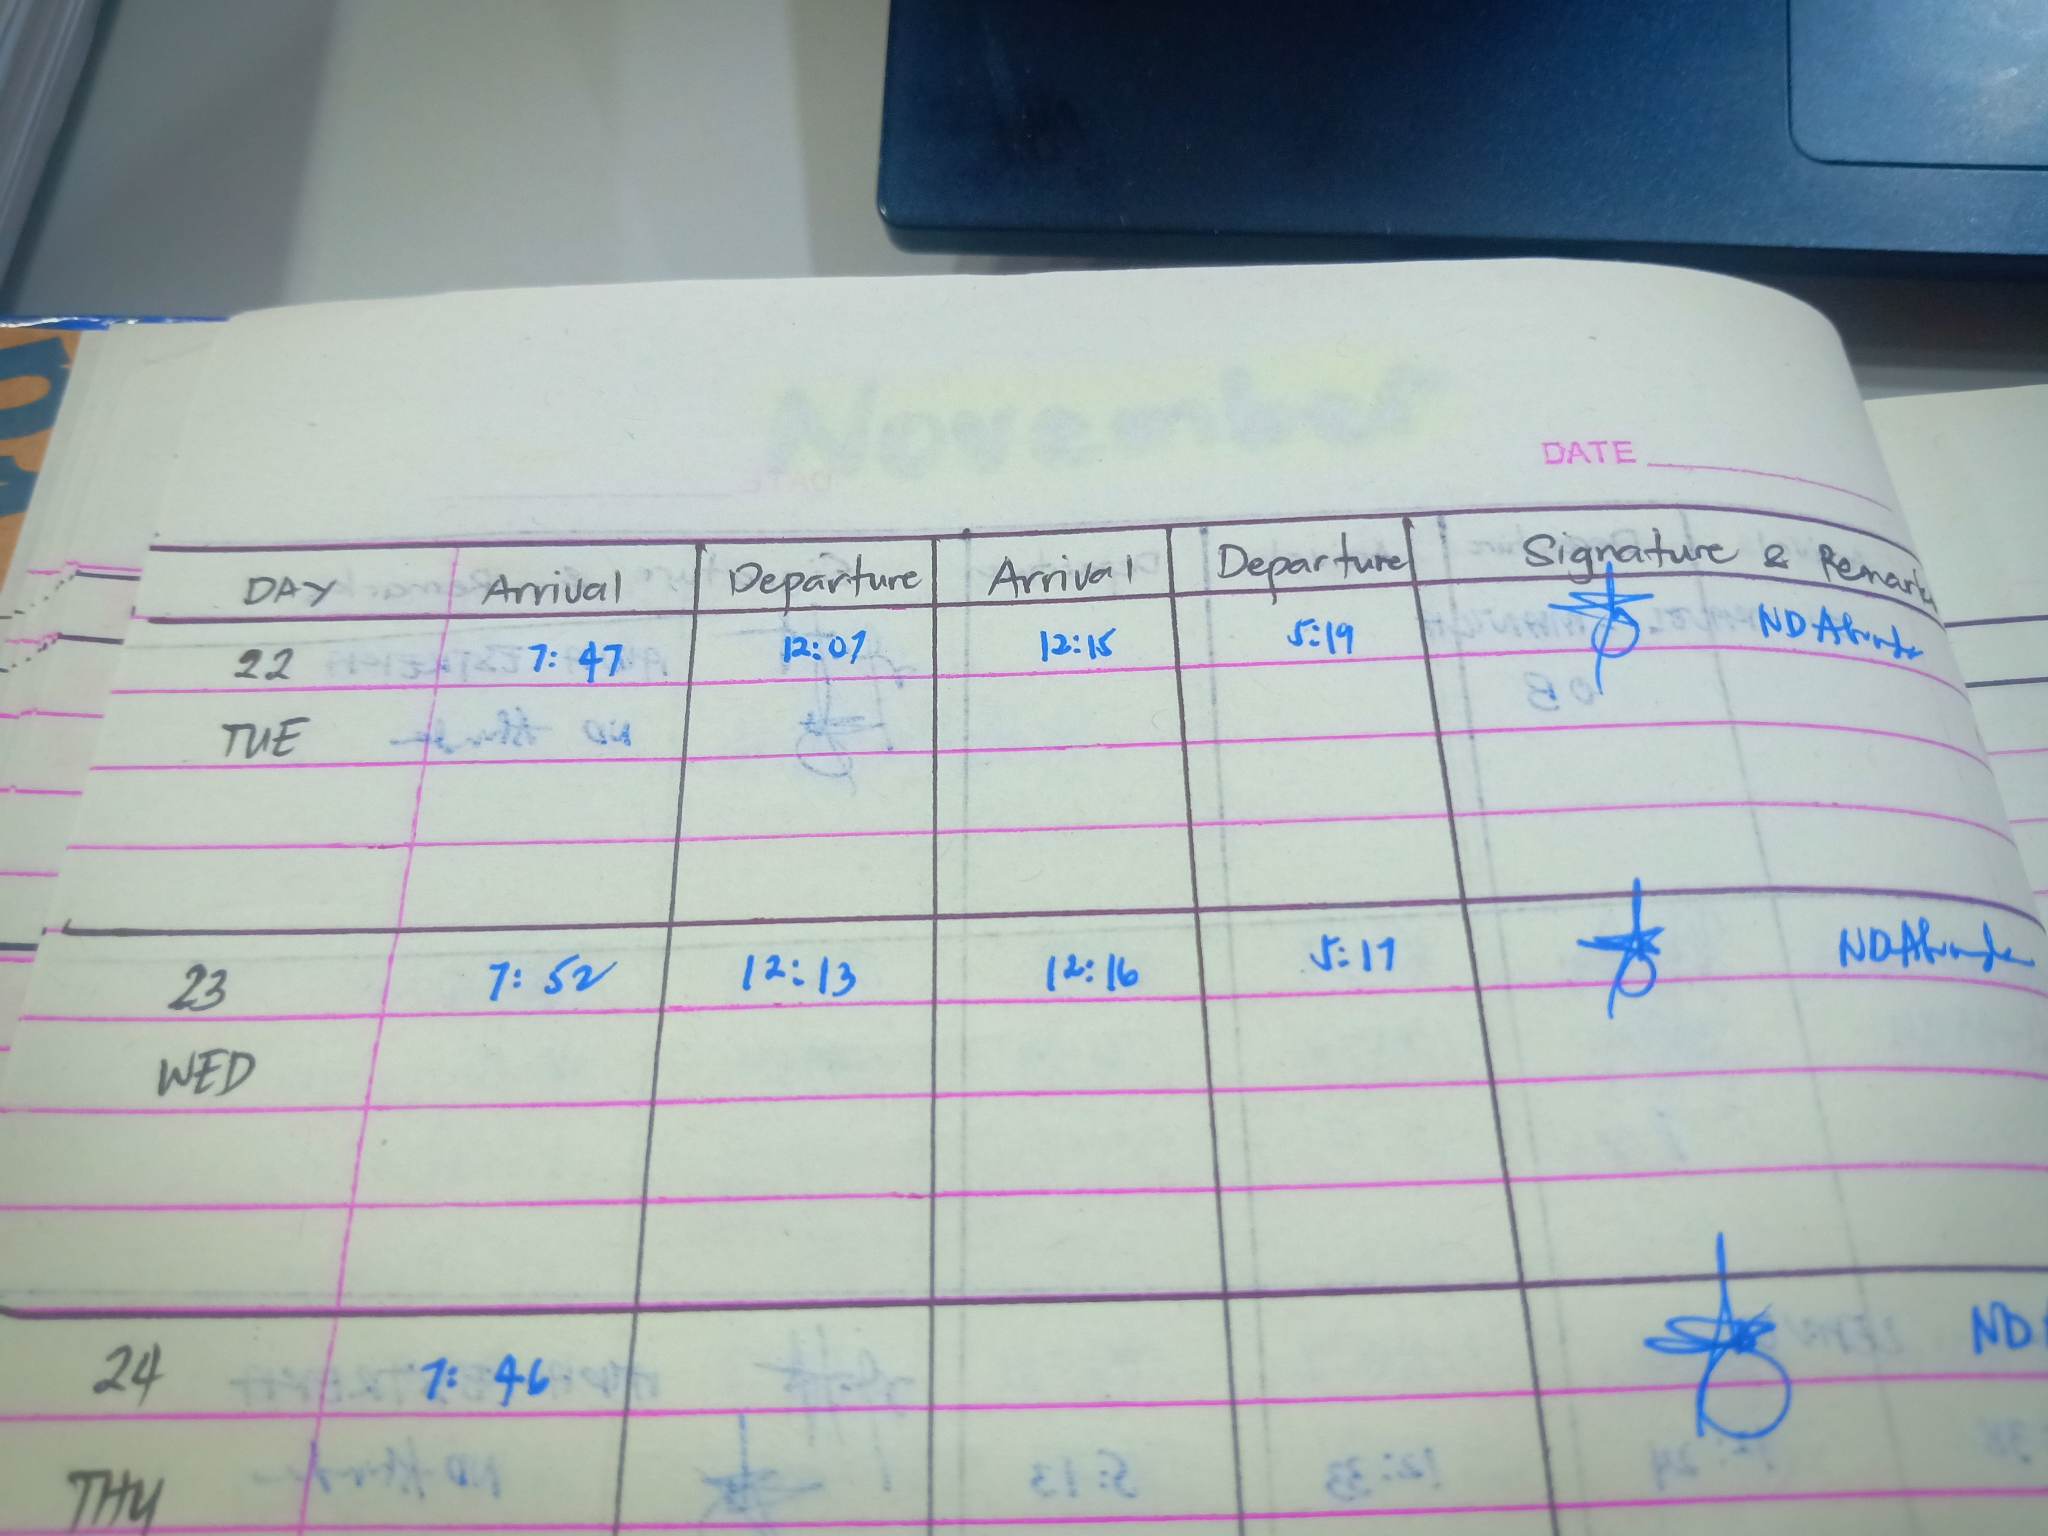 DATE
DAY Arrival Departure Arrival Departure Signature & Remarks
22 7:47 12:07 12:15 5:19
TUE
23 7:52 12:13 12:16 5:17
WED
24 7:46
THU